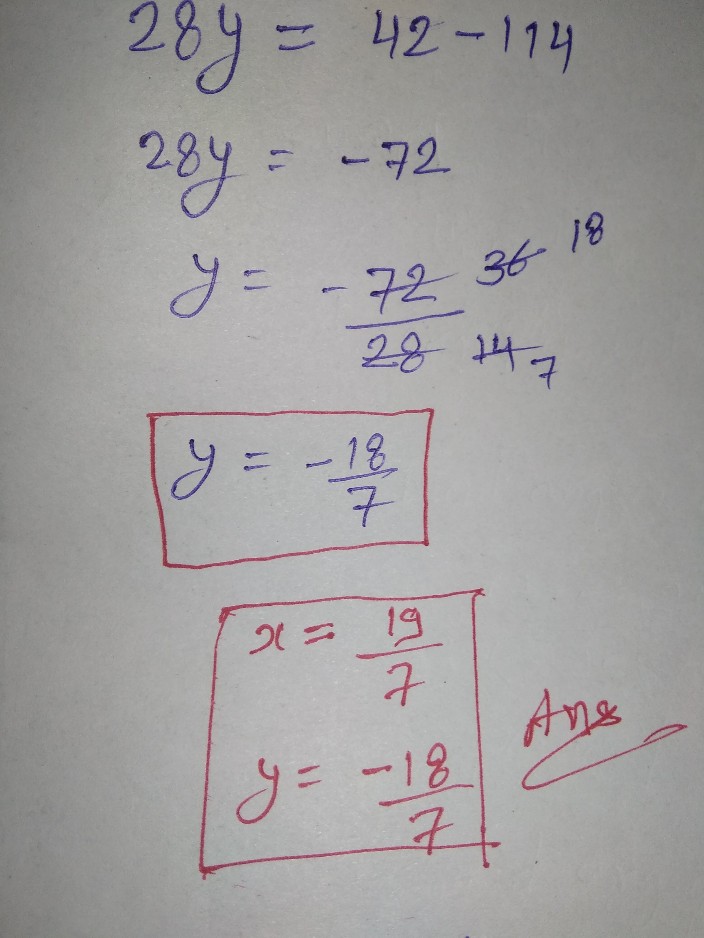 28y = 42 - 114
28y = -72
y = -72/28 36/14 18/7
y = -18/7
x = 19/7
y = -18/7
Ans